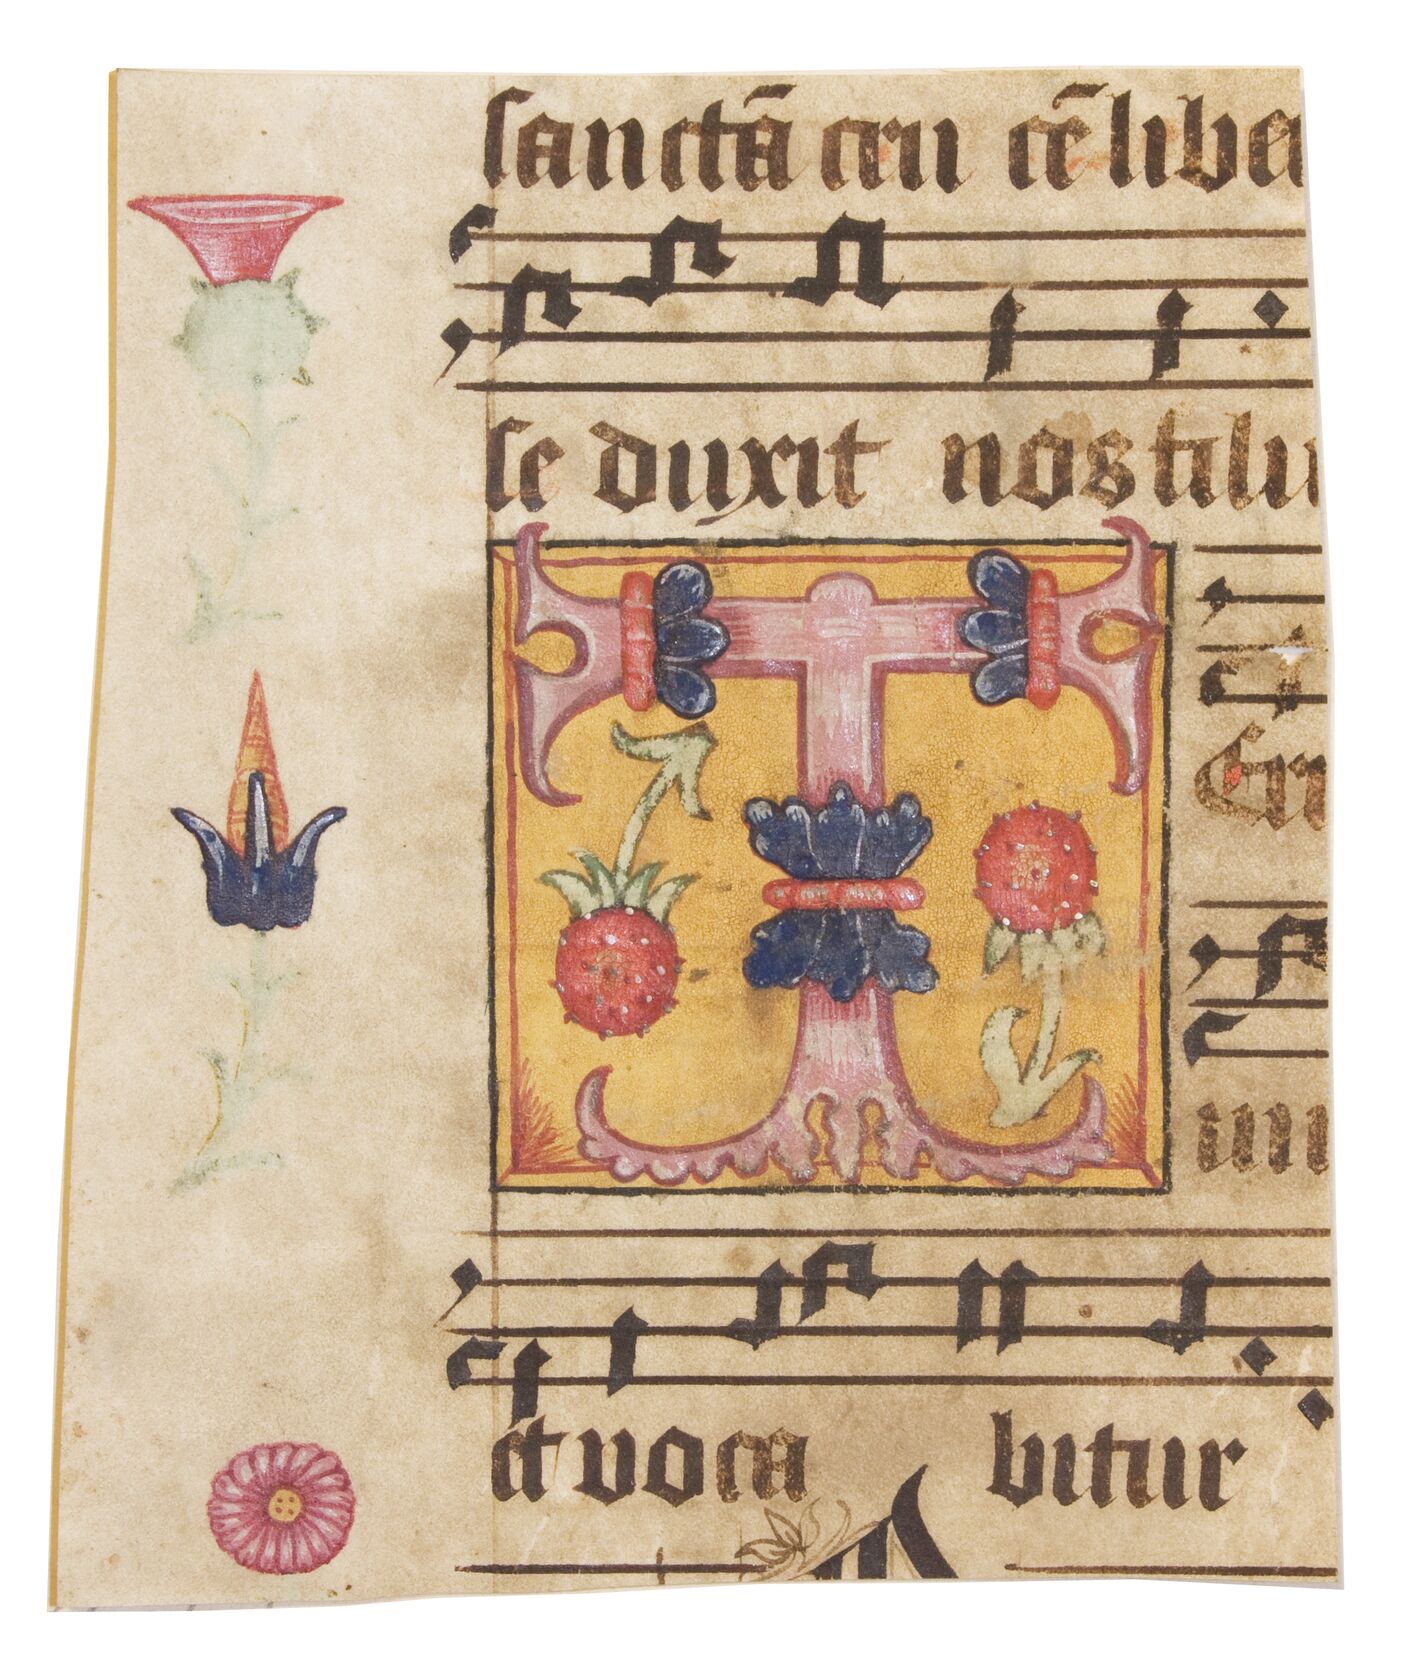 sanctā cru cē libe
se duxit nos fili
T
et voca bitur